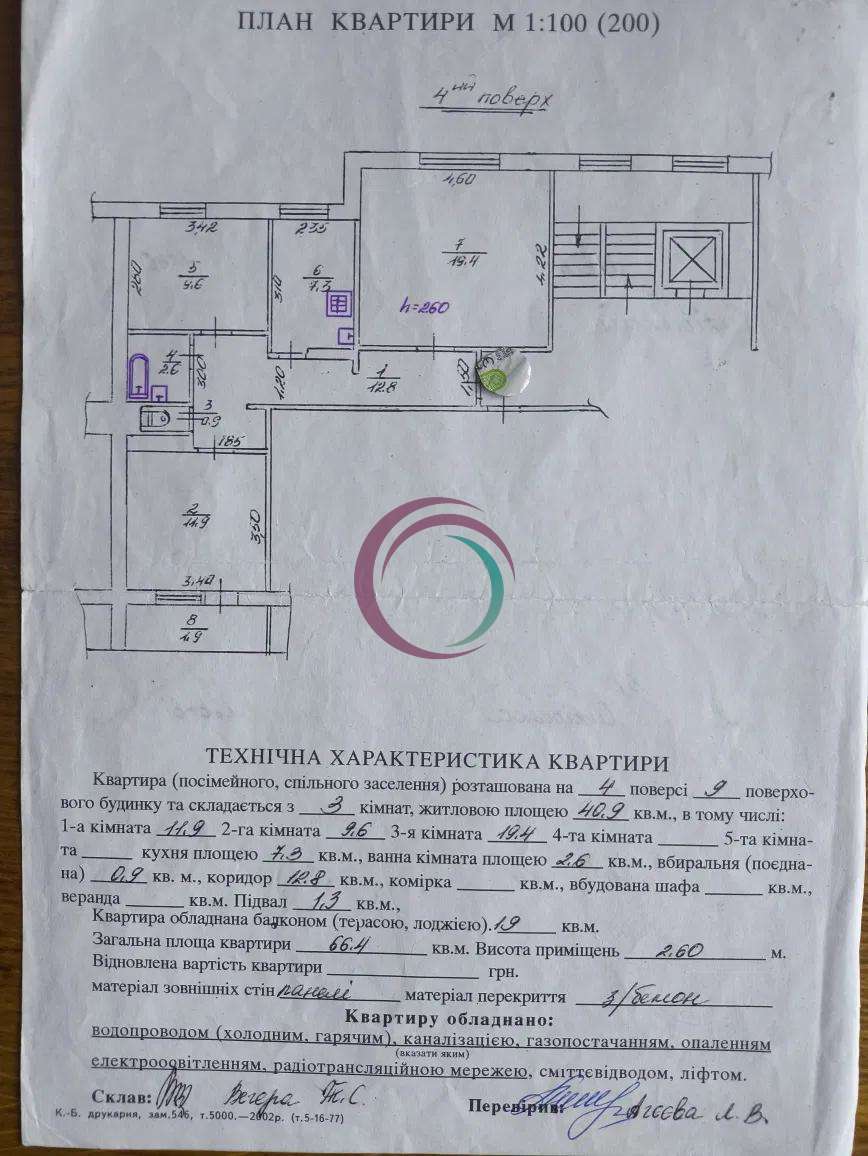 ПЛАН КВАРТИРИ М 1:100 (200)
4ий поверх
4,60
3,42
2,35
5
9.6
2,60
6
7.3
3,10
7
19.4
4,22
h=260
4
2.6
3,00
1,20
1
12.8
1,50
3
0.9
1,85
2
11.9
3,50
3,40
8
1.9
ТЕХНІЧНА ХАРАКТЕРИСТИКА КВАРТИРИ
Квартира (посімейного, спільного заселення) розташована на 4 поверсі 9 поверхо-
вого будинку та складається з 3 кімнат, житловою площею 40,9 кв.м., в тому числі:
1-а кімната 11,9 2-га кімната 9.6 3-я кімната 19.4 4-та кімната ______ 5-та кімна-
та ______ кухня площею 7.3 кв.м., ванна кімната площею 2.6 кв.м., вбиральня (поєдна-
на) 0,9 кв. м., коридор 12.8 кв.м., комірка ______ кв.м., вбудована шафа ______ кв.м.,
веранда ______ кв.м. Підвал 1,3 кв.м.,
Квартира обладнана балконом (терасою, лоджією). 1,9 кв.м.
Загальна площа квартири 66.4 кв.м. Висота приміщень 2,60 м.
Відновлена вартість квартири ______ грн.
матеріал зовнішніх стін панелі матеріал перекриття з/бетон
Квартиру обладнано:
водопроводом (холодним, гарячим), каналізацією, газопостачанням, опаленням
(вказати яким)
електроосвітленням, радіотрансляційною мережею, сміттєвідводом, ліфтом.
Склав: Вегера Т.С.
Перевірив: Агєєва Л.В.
К.-Б. друкарня, зам.546, т.5000.—2002р. (т.5-16-77)